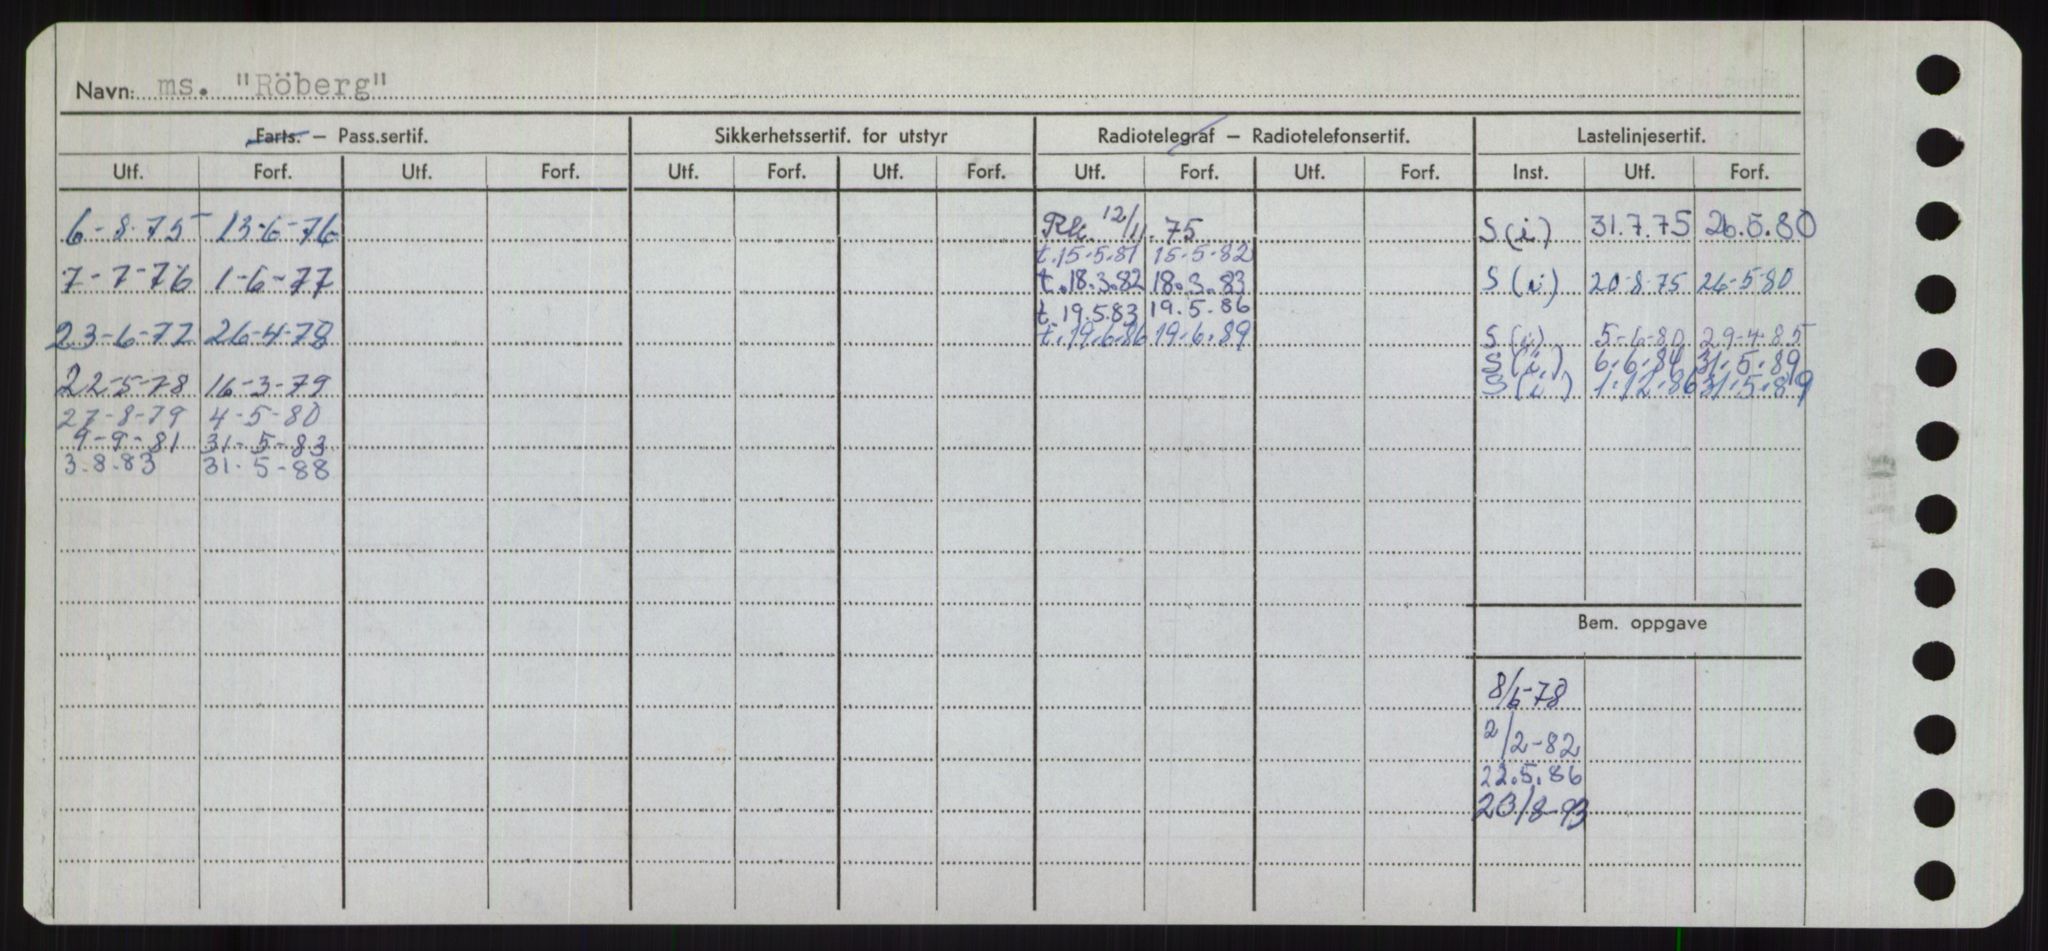 Navn: ms. "Röberg"
Farts. — Pass.sertif. Sikkerhetssertif. for utstyr Radiotelegraf — Radiotelefonsertif. Lastelinjesertif.
Utf. Forf. Utf. Forf. Utf. Forf. Utf. Forf. Utf. Forf. Utf. Forf. Inst. Utf. Forf.
6-8-75 13-6-76 12/11.75 S(i) 31.7.75 26.5.80
t.15-5.81 15-5-82
7-7-76 1-6-77 t.18.3.82 18.3.83 S(i) 20-8-75 26-5-80
t 19.5.83 19.5.86
23-6-77 26-4-78 t.19.6.86 19.6.89 S(i) 5-6-80 29-4-85
S(i) 6.6.84 31.5.89
22-5-78 16-3-79 S(i) 1.12.86 31.5.89
27-8-79 4-5-80
9-9-81 31-5-83
3.8.83 31.5-88
Bem. oppgave
8/6-78
2/2-82
22.5.86
20/8-93